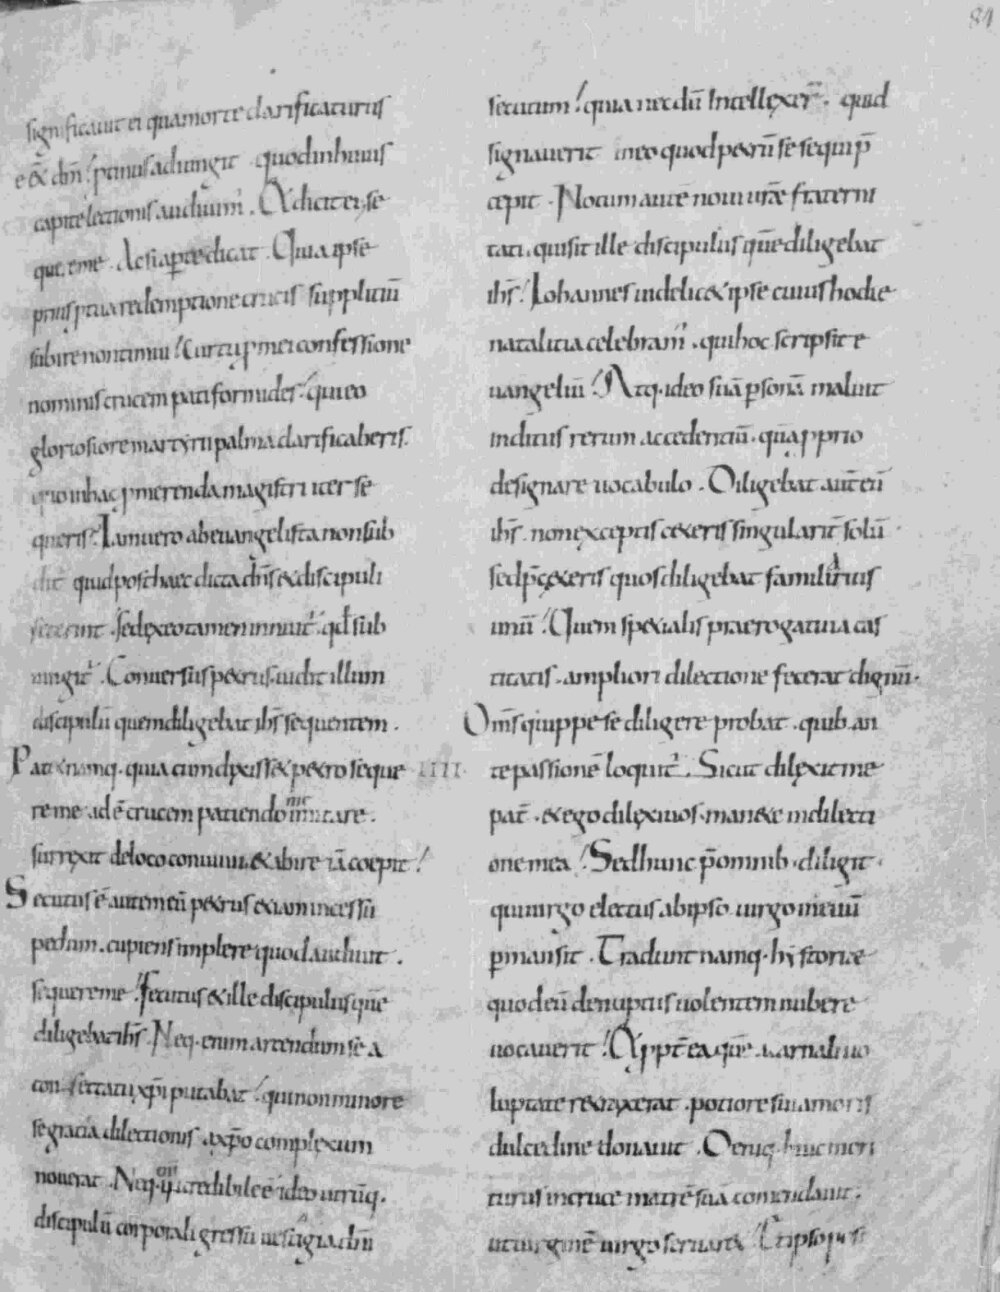 84
significauit ei qua morte clarificaturus
e&̄ dm̄. prius adiungit quod in huius
capite lectionis audiuim᷒. & dicit ei, se
quere me. Ac si aperte dicat. Quia ipse
prius p tua redemptione crucis suppliciū
subire non timui. Cur tu p mei confessione
nominis crucem pati formides. qui eo
gloriosiore martyrii palma clarificaberis.
quo in hac pmerenda magistri iter se
queris. Iam uero ab euangelista non sub
dit᷒ quid post haec dicta dn̄s & discipuli
fecerint. sed ex eo tamen innuit᷒. qd̄ sub
iungit᷒. Conuersus petrus. uidit illum
discipulū quem diligebat ihs̄ sequentem.
Patet namq. quia cum dixisset petro seque IIII.
re me. id ē crucem patiendo me imitare.
surrexit de loco conuiuii. & abire iā coepit.
Secutus ē autem eū petrus etiam incessū
pedum. cupiens implere quod audiuit.
sequere me. secutus & ille discipulus quē
diligebat ihs̄. Neq. enim a tendum se a
consectatu xp̄i putabat. qui non minore
se gracia dilectionis a xp̄o complexum
nouerat. Neq. credibile ē ideo utrūq.
discipulū corporali gressu uestigia dn̄i
secutum. quia necdū intellexer̄. quid
signauerit in eo quod petrū se sequi p̄
cepit. Notum autē noui urāe fraterni
tati. qui sit ille discipulus quē diligebat
ihs̄. Iohannes uidelic& ipse cuius hodie
natalitia celebram᷒. qui hoc scripsit e
uangeliū. Atq. ideo suā psonā maluit
inditiis rerum accedentiū. quā pprio
designare uocabulo. Diligebat aut̄ eū
ihs̄. non exceptis ceteris singularit̄ solū
sed p̄ ceteris quos diligebat familiarius
unū. Quem specialis praerogatiua cas
titatis. ampliori dilectione fecerat dignū.
Oms̄ quippe se diligere probat. quib. an
te passionē loquit᷒. Sicut dilexit me
pat̄. & ego dilexi uos. manete in dilecti
one mea. Sed hunc p̄ omnib. diligit.
qui uirgo electus ab ipso. uirgo in euū
pmansit. Tradunt namq. hystoriae
quod eū de nuptiis uolentem nubere
uocauerit. & ppt̄ ea quē. a carnali uo
luptate retraxerat. potiore sui amoris
dulcedine donauit. Deniq. huic mori
turus in cruce matrē suā comendauit.
ut uirginē uirgo seruaret. Et ipso post